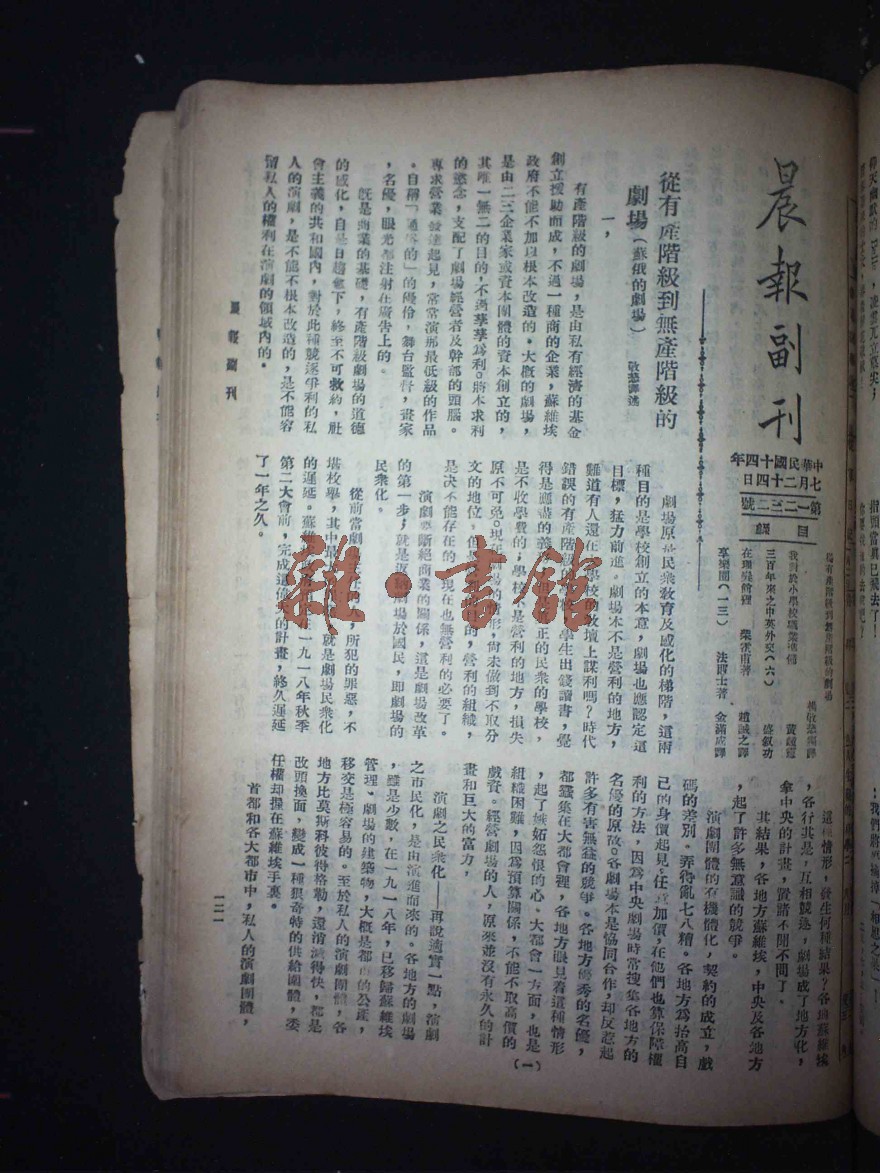 晨報副刊
中華民國十四年
七月二十四日
第一二三二號
目錄
從有產階級到無產階級的劇場
楊敬慈譯
我對於小學校職業準備
三百年來之中英外交(六)
盛敘功
在珊吳爵裡
榮雲甫著
趙誠之譯
享樂園(一三)
法朗士著
金滿成譯
從有產階級到無產階級的
劇場(蘇俄的劇場)
敬慈譯述
一,
有產階級的劇場,是由私有經濟的基金
創立援助而成,不過一種商的企業,蘇維埃
政府不能不加以根本改造的。大概的劇場,
是由二三企業家或資本團體的資本創立的,
其唯一無二的目的,不過孳孳為利。將本求利
的慾念,支配了劇場經營者及幹部的頭腦。
專求營業發達起見,常常演那最低級的作品
。自稱「通俗的」的優伶,舞台監督,畫家
,名優,眼光都注射在廣告上的。
既是商業的基礎,有產階級劇場的道德
的感化,自是日趨愈下,終至不可救約,社
會主義的共和國內,對於此種競逐爭利的私
人的演劇,是不能不根本改造的,是不能容
留私人的權利在演劇的領域內的。
劇場原於民衆教育及感化的梯階,這兩
種目的是學校創立的本意,劇場也應認定這
目標,猛力前進。劇場本不是營利的地方,
難道有人還在學校的教壇上謀利嗎?時代
錯誤的有產階級學生出錢讀書,覺
得是應盡的義正的民衆的學校,
是不收學費的;學校不是營利的地方,損失
原不可免。現劇場的情形,尚未做到不取分
文的地位。但是的,營利的組織,
是决不能存在的現在也無營利的必要了。
演劇要斷絕商業的關係,這是劇場改革
的第一步;就是返劇場於國民,即劇場的
民衆化。
從前當劇,所犯的罪惡,不
堪枚舉,其中最就是劇場民衆化
的遲延。蘇維埃在一九一八年秋季
第二大會前,完成這偉的計畫,終久遲延
了一年之久。
這種情形,發生何種結果?各地蘇維埃
,各行其是,互相競逐,劇場成了地方化,
拿中央的計畫,置諸不聞不問了。
其結果,各地方蘇維埃,中央及各地方
,起了許多無意識的競爭。
演劇團體的有機體化,契約的成立,戲
碼的差別。弄得亂七八糟。各地方為抬高自
己的身價起見,任意加價,在他們也算保障權
利的方法,因為中央劇場時常搜集各地方的
名優的原故。各劇場本是協同合作,却反惹起
許多有害無益的競爭。各地方優秀的名優,
都蠶集在大都會裡,各地方眼見着這種情形
,起了嫉妬怨恨的心。大都會一方面,也是
組織困難,因為預算關係,不能不取高價的
戲資。經營劇場的人,原來並沒有永久的計
畫和巨大的富力,
演劇之民衆化——再說適實一點,演劇
之市民化,是由演進而來的。各地方的劇場
,雖是少數,在一九一八年,已移歸蘇維埃
管理。劇場的建築物,大概是都市的公產,
移交是極容易的。至於私人的演劇團體,各
地方比莫斯科彼得格勒,還消滅得快,都是
改頭換面,變成一種狠奇特的供給團體,委
任權却握在蘇維埃手裏。
首都和各大都市中,私人的演劇團體,
(一)
晨報副刊
一二一
雜·書館